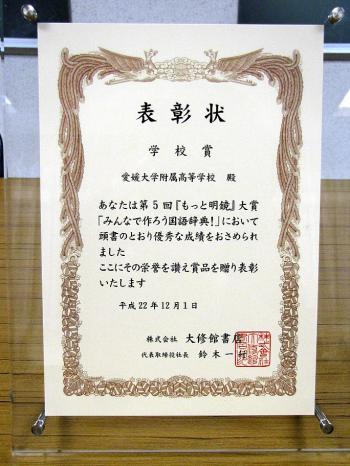 表彰状
学校賞
愛媛大学附属高等学校 殿
あなたは第5回『もっと明鏡』大賞
「みんなで作ろう国語辞典!」において
頭書のとおり優秀な成績をおさめられ
ました
ここにその栄誉を讃え賞品を贈り表彰
いたします
平成22年12月1日
株式会社 大修館書店
代表取締役社長 鈴木一